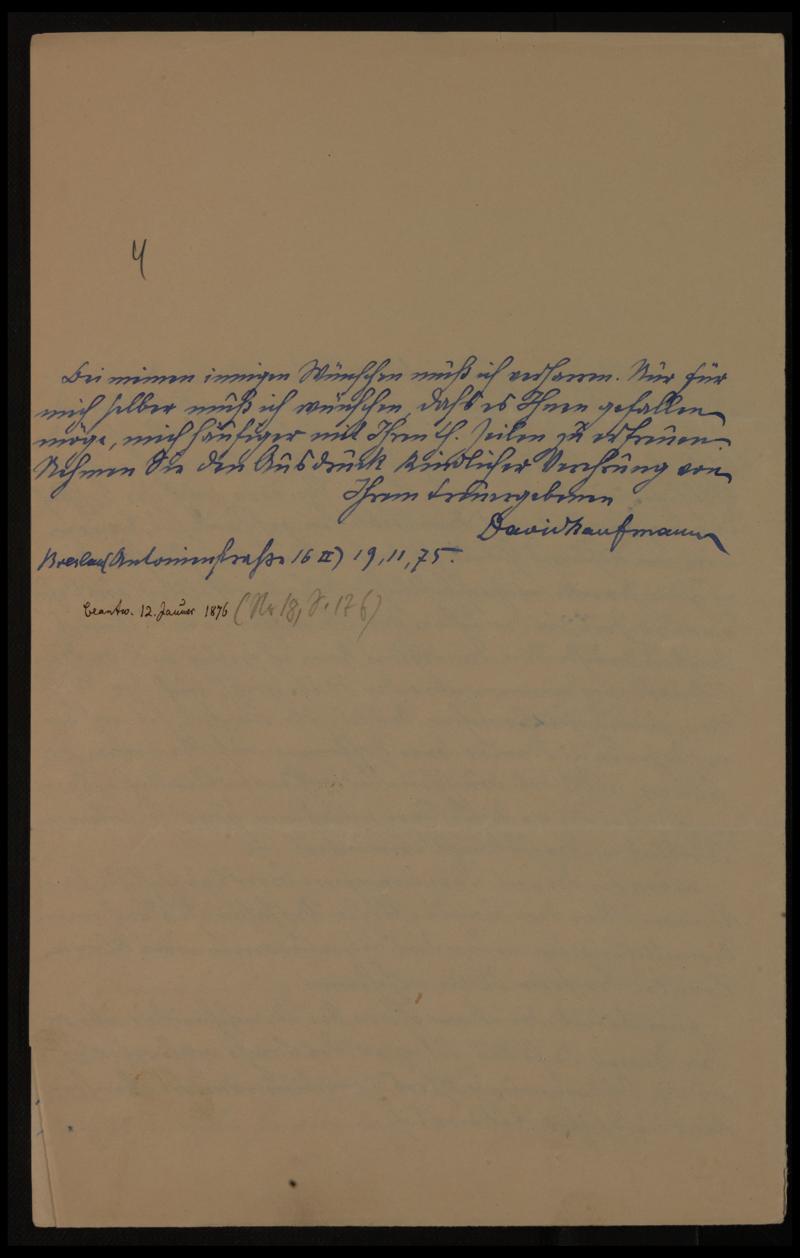 4
Bei meinen innigen Wünschen muß ich verharren. Nur für
mich selber muß ich wünschen, daß es Ihnen gefallen
möge, mich häufiger mit Ihren l. Zeilen zu erfreuen.
Nehmen Sie den Ausdruck kindlicher Verehrung von
Ihrem treuergebenen
David Kaufmann
Breslau (Antonienstraße 16 II) 19, 11, 75.
beantw. 12. Januar 1876 (Nr 18, S. 176)